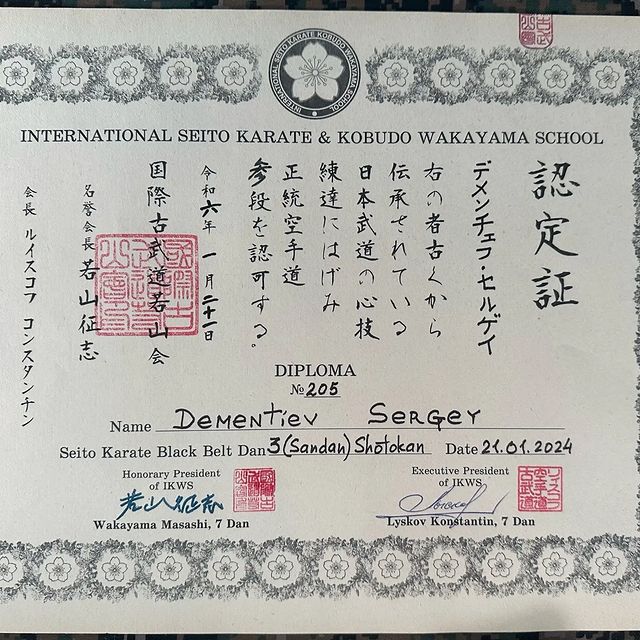 INTERNATIONAL SEITO KARATE KOBUDO WAKAYAMA SCHOOL
INTERNATIONAL SEITO KARATE & KOBUDO WAKAYAMA SCHOOL
認定証
デメンチェフ・セルゲイ
右の者古くから
伝承されている
日本武道の心技
練達にはげみ
正統空手道
参段を認可する。
令和六年一月二十一日
国際古武道若山会
名誉会長 若山征志
会長 ルイスコフ コンスタンチン
DIPLOMA
№205
Name Dementiev Sergey
Seito Karate Black Belt Dan 3 (Sandan) Shotokan Date 21.01.2024
Honorary President
of IKWS
若山征志
Wakayama Masashi, 7 Dan
Executive President
of IKWS
Lyskov Konstantin, 7 Dan